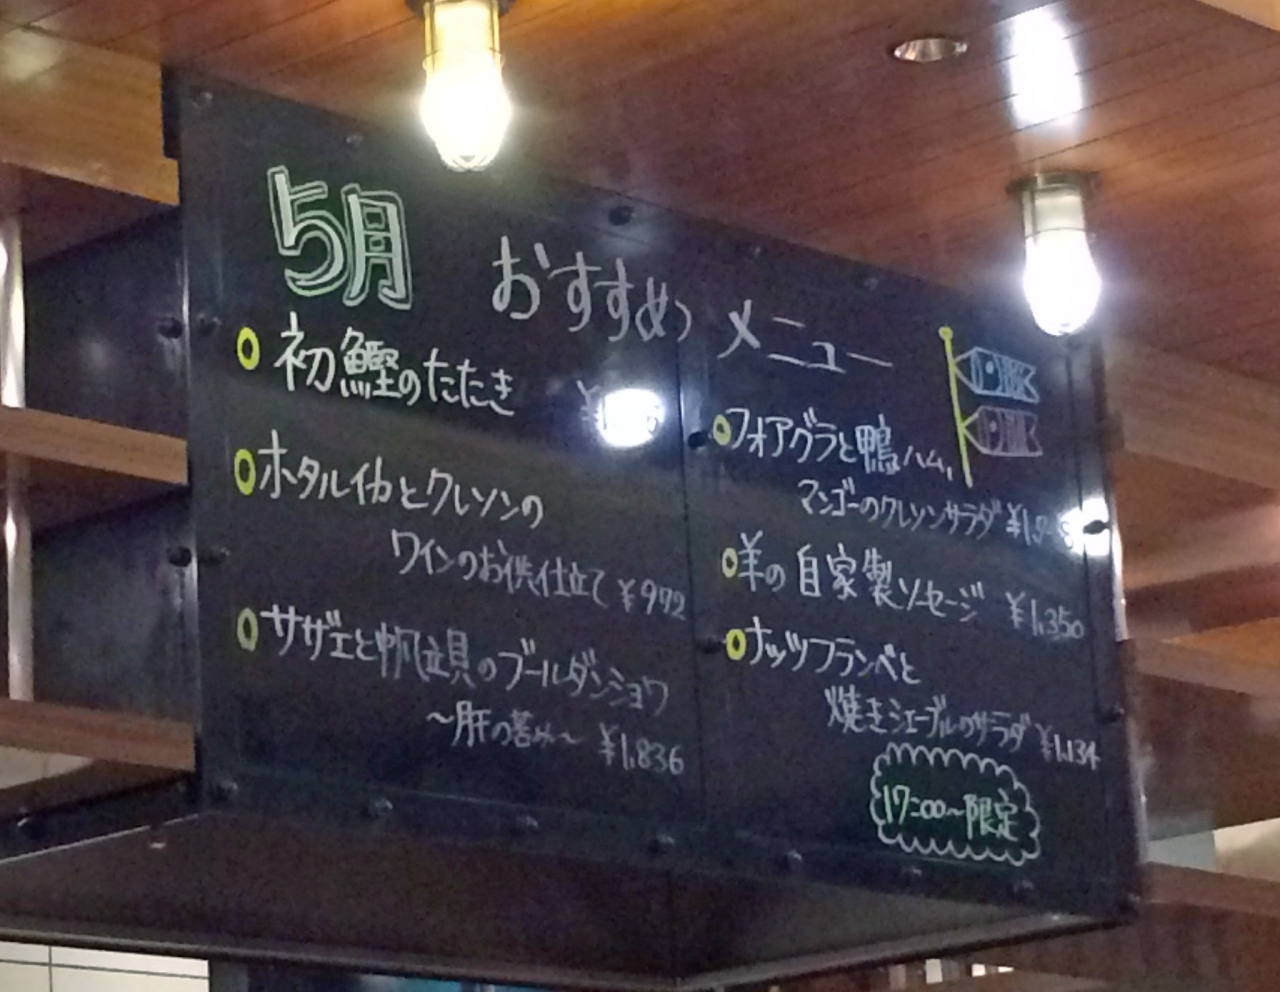 5月 おすすめ メニュー
初鰹のたたき
ホタルイカとクレソンの
ワインのお供仕立て ¥972
サザエと帆立貝のブールダンショワ
〜肝の苦み〜 ¥1,836
フォアグラと鴨ハム、
マンゴーのクレソンサラダ
羊の自家製ソーセージ ¥1,350
ナッツフランベと
焼きシェーブルのサラダ ¥1,134
17:00〜限定